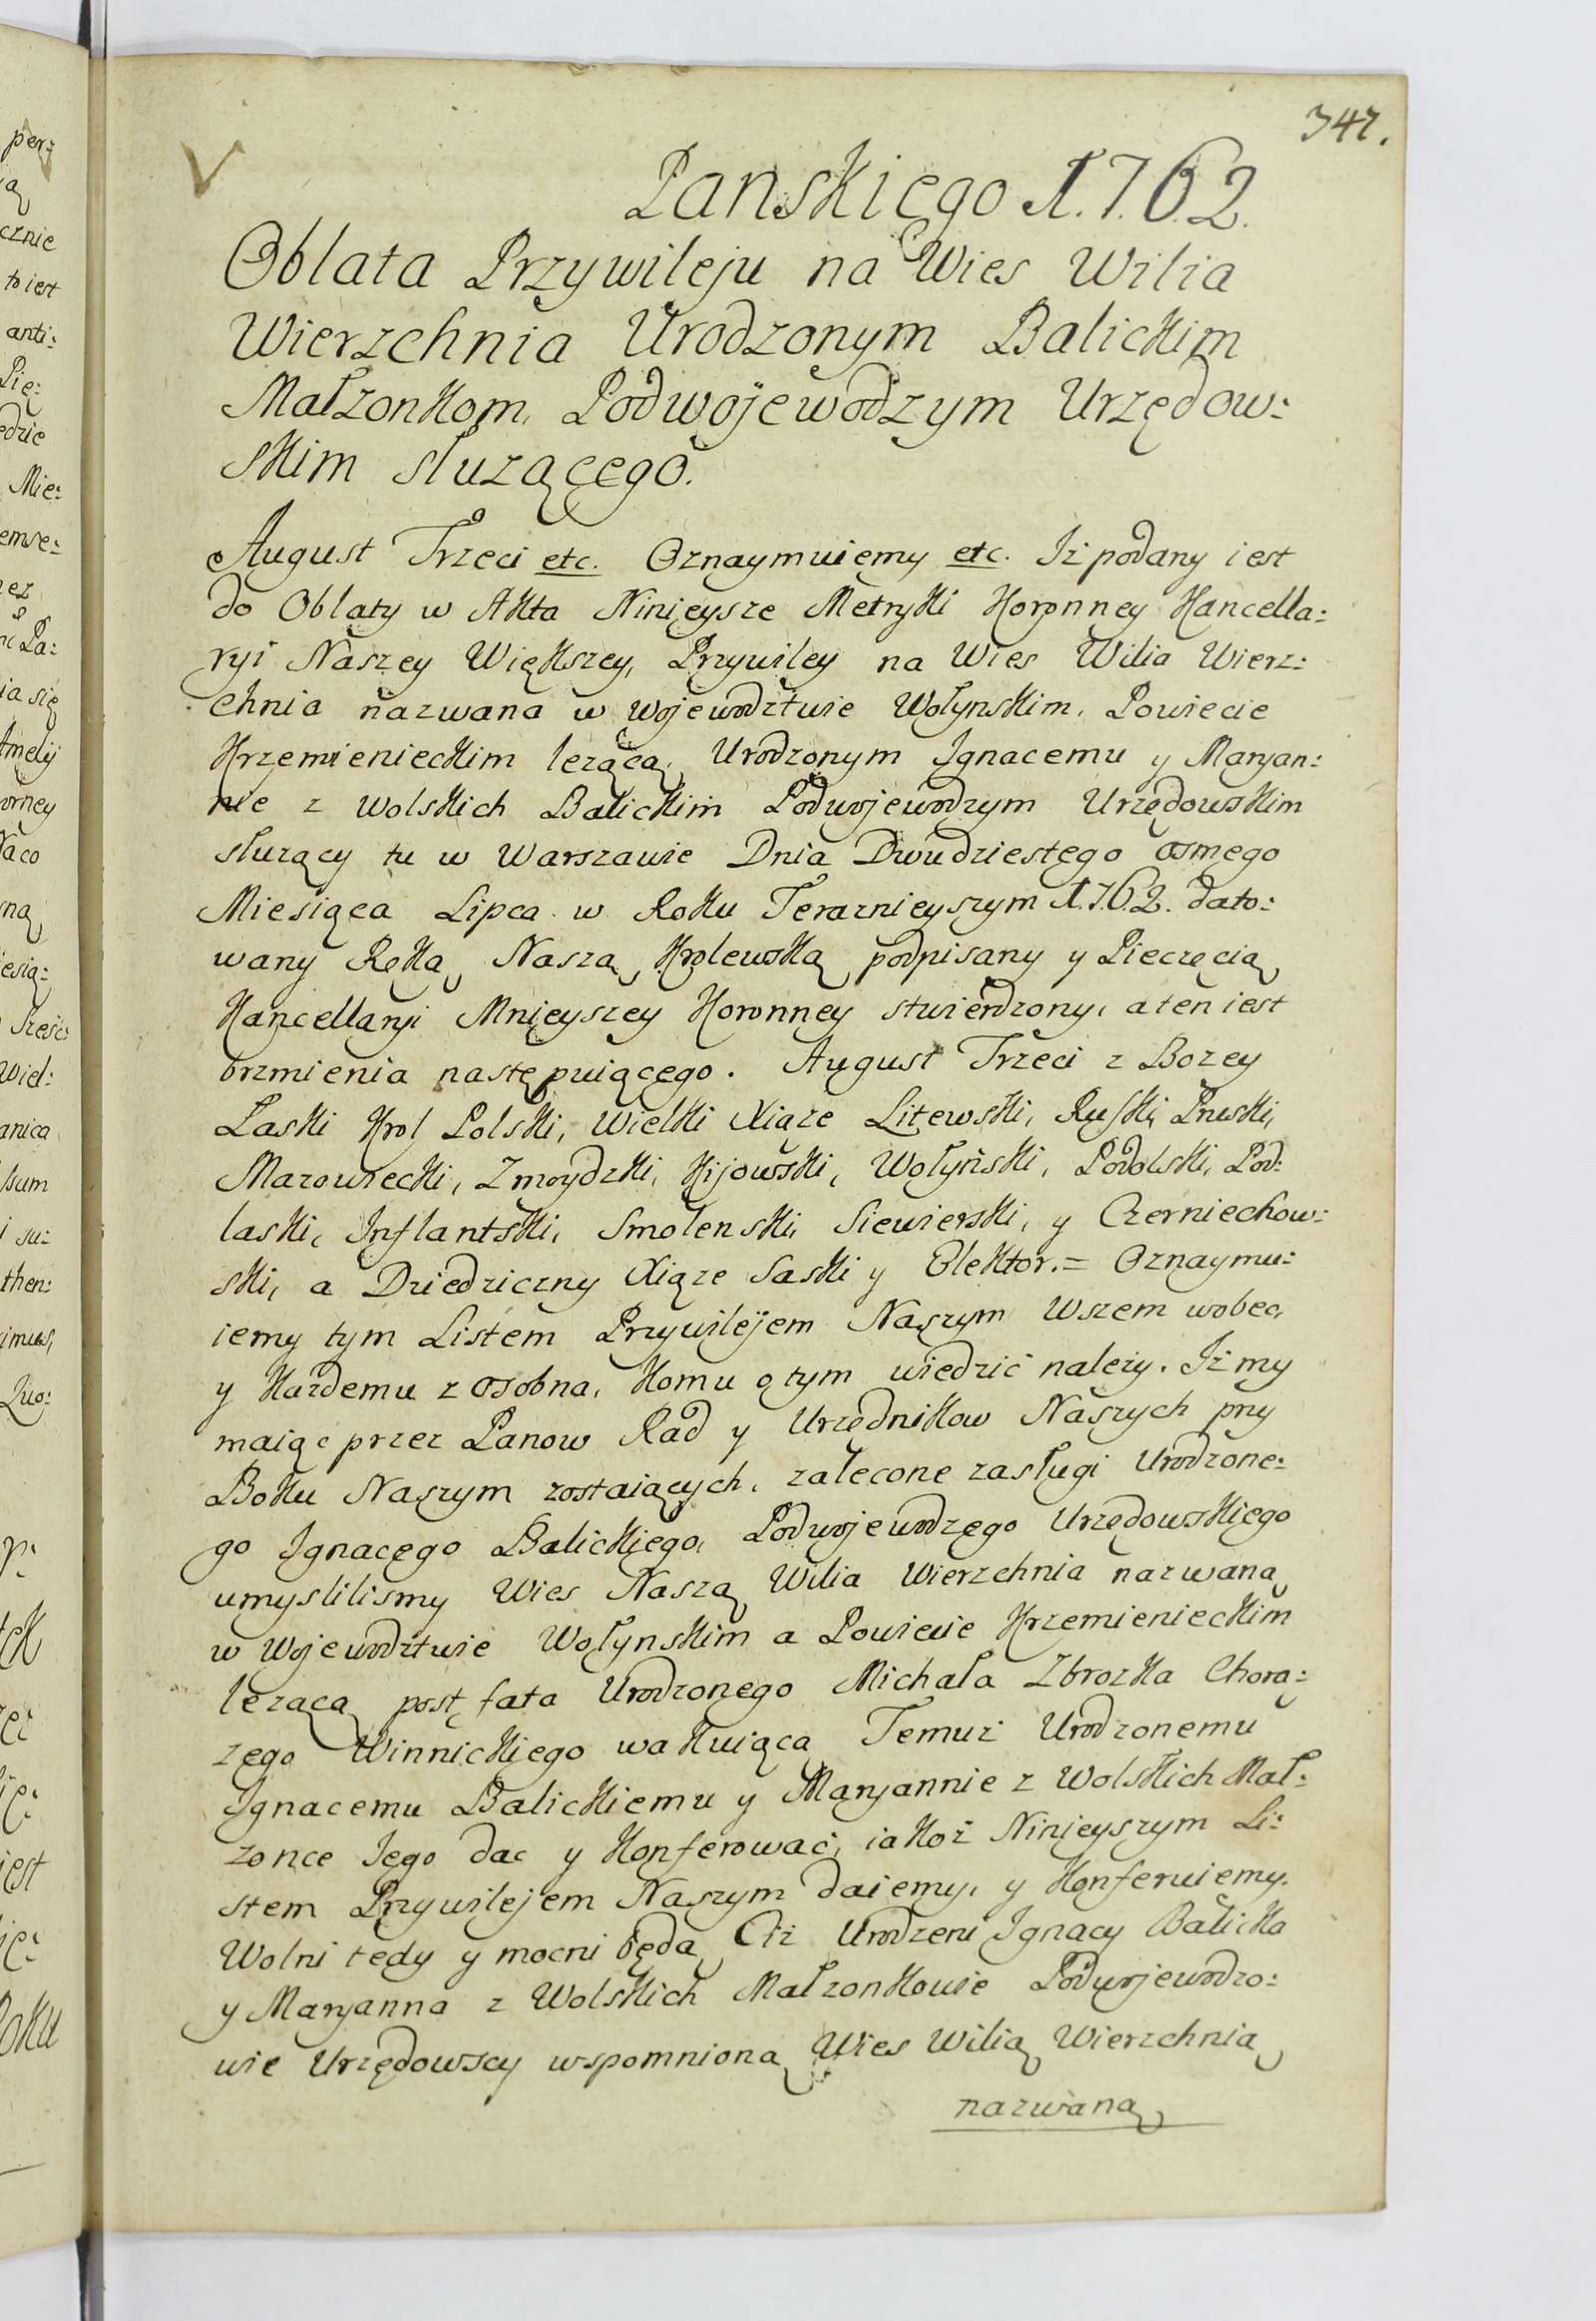 347.
Panskiego 1762.
Oblata Przywileju na Wies Wilia
Wierzchnia Urodzonym Balickim
Małzonkom, Podwojewodzym Urzędow:
skim słuzącego.
August Trzeci etc. Oznaymuiemy etc. Iż podany iest
do Oblaty w Akta Ninieysze Metryki Koronney Kancella:
ryi Naszey Większey, Przywiley na Wies Wilia Wierz:
chnia nazwana w Wojewodztwie Wołynskim, Powiecie
Krzemienieckim lezącą, Urodzonym Ignacemu y Maryan:
nie z Wolskich Balickim Podwojewodzym Urzędowskim
słuzący tu w Warszawie Dnia Dwudziestego osmego
Miesiąca Lipca w Roku Teraznieyszym 1762. dato:
wany Ręką Naszą Krolewską podpisany y Pieczęcią
Kancellaryi Mnieyszey Koronney stwierdzony, a ten iest
brzmienia następuiącego. August Trzeci z Bozey
Łaski Krol Polski, Wielki Xiąze Litewski, Ruski, Pruski,
Mazowiecki, Zmoydzki, Kijowski, Wołyński, Podolski, Pod:
laski, Inflantski, Smolenski, Siewierski, y Czerniechow:
ski, a Dziedziczny Xiąze Saski y Elektor.= Oznaymu:
iemy tym Listem Przywilejem Naszym Wszem wobec,
y Kazdemu z osobna, Komu o tym wiedzić nalezy. Iż my
maiąc przez Panow Rad y Urzędnikow Naszych przy
Boku Naszym zostaiących, zalecone zasługi Urodzone:
go Ignacego Balickiego, Podwojewodzego Urzędowskiego
umyslilismy Wies Naszą Wilia Wierzchnia nazwaną
w Wojewodztwie Wołynskim a Powiecie Krzemienieckim
lezącą post fata Urodzonego Michała Zbrozka Chorą:
zego Winnickiego wakuiącą Temuż Urodzonemu
Ignacemu Balickiemu y Maryannie z Wolskich Mał:
zonce Jego dac y Konferować, iakoż Ninieyszym Li:
stem Przywilejem Naszym daiemy, y Konferuiemy.
Wolni tedy y mocni będą Ciż Urodzeni Ignacy Balicki
y Maryanna z Wolskich Małzonkowie Podwojewodzo:
wie Urzędowscy wspomnioną Wies Wilią Wierzchnią
nazwaną